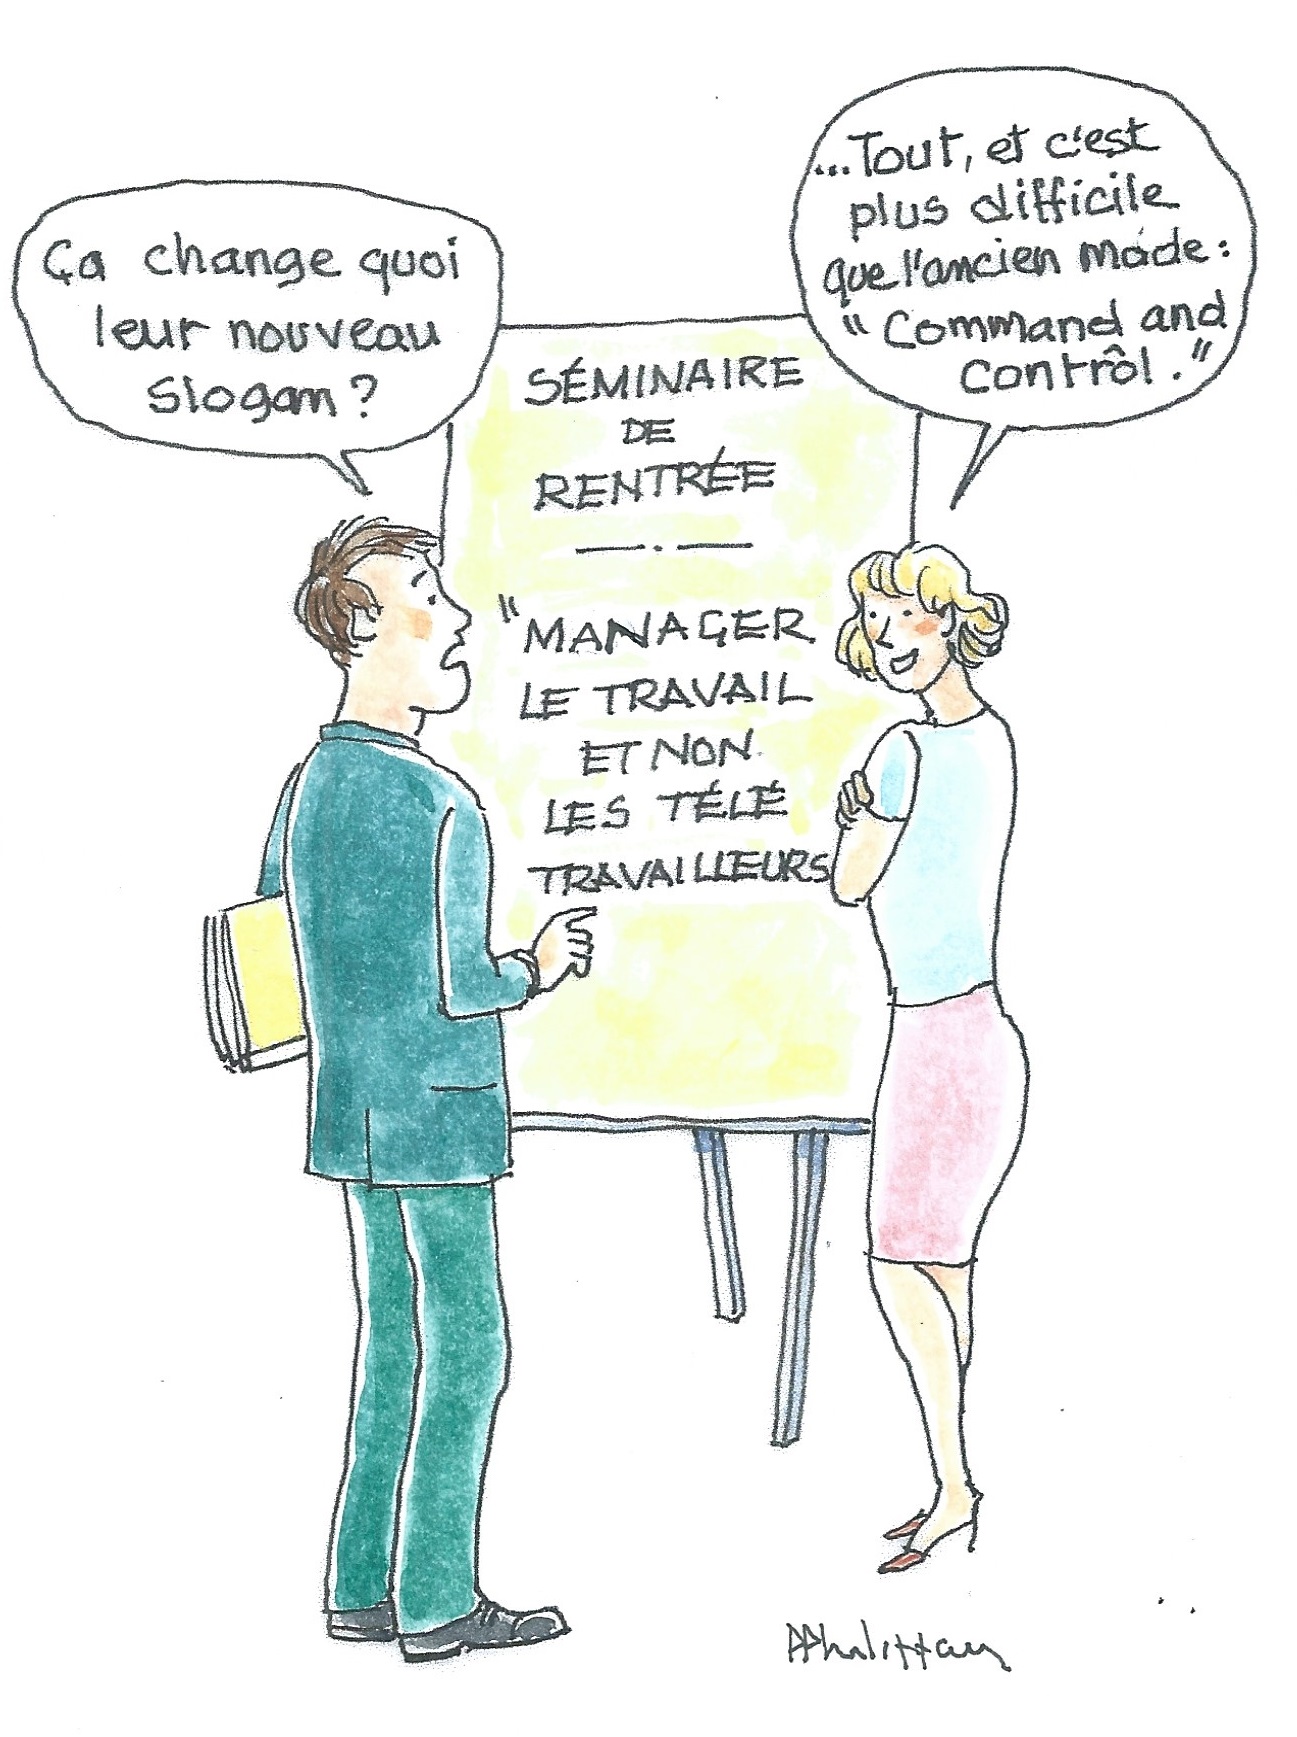 Ça change quoi
leur nouveau
slogan ?
...Tout, et c'est
plus difficile
que l'ancien mode :
"Command and
contrôl."
SÉMINAIRE
DE
RENTRÉE
"MANAGER
LE TRAVAIL
ET NON
LES TÉLÉ
TRAVAILLEURS